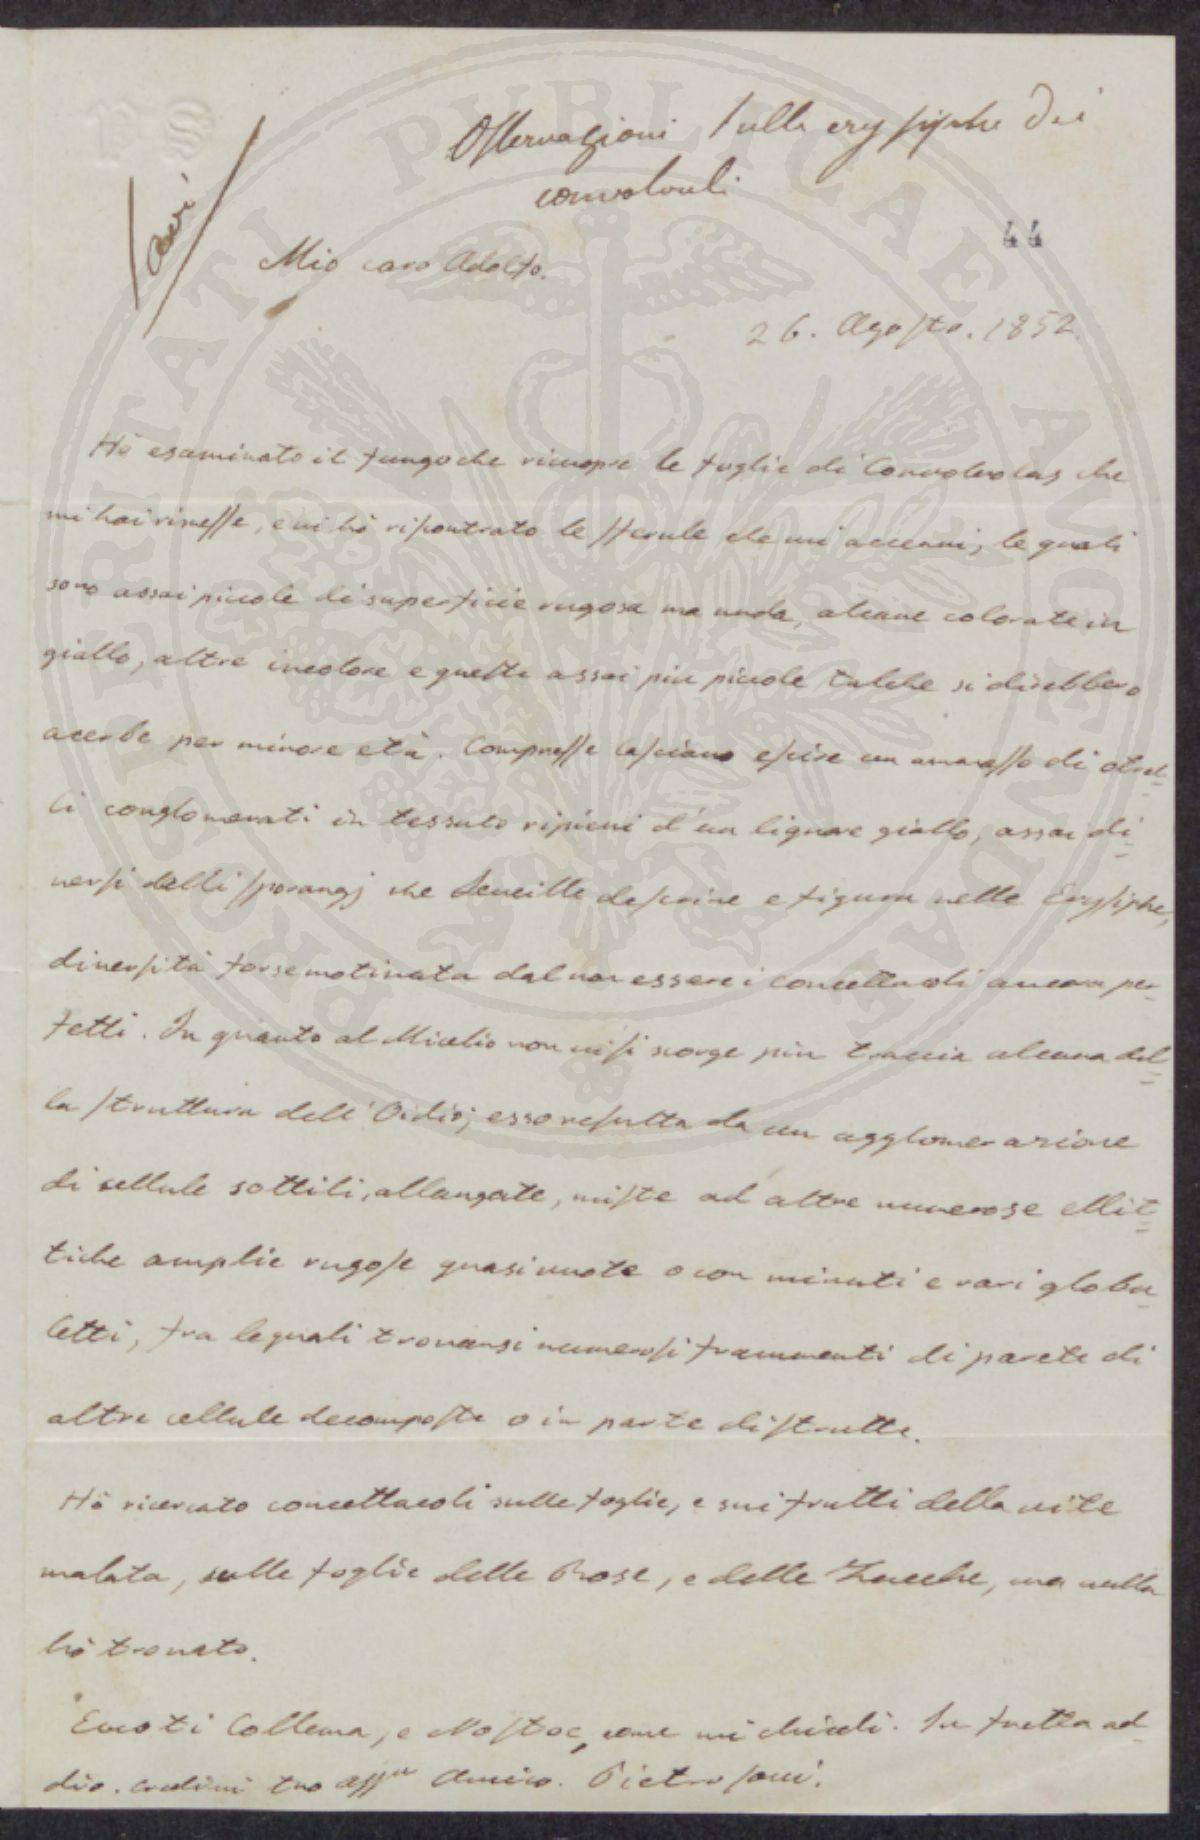 PS
PROSPERITATI PUBLICAE AUGENDAE
Osservazioni sulla erysiphe dei
convolvuli
Savi
44
Mio caro Adolfo.
26. Agosto. 1852.
Hò esaminato il fungo che ricuopre le foglie di Convolvolus che
mi hai rimesse, e vi hò riscontrato le sferule che mi accenni, le quali
sono assai piccole di superficie rugosa ma nuda, alcune colorate in
giallo, altre incolore e queste assai più piccole talche si direbbero
acerbe per minore età. Compresse lasciano escire un ammasso di otrel-
li conglomerati in tessuto ripieni d'un liquore giallo, assai di-
versi dalli sporangj che Leveille descrive e figura nelle Erysiphe,
diversità forse motivata dal non essere i concettacoli ancora per-
fetti. In quanto al Micelio non vi si scorge più traccia alcuna del-
la struttura dell'Oidio; esso resulta da un agglomerazione
di cellule sottili, allungate, miste ad altre numerose ellit-
tiche amplie rugose quasi vuote o con minuti e rari globu-
letti, fra le quali trovansi numerosi frammenti di parete di
altre cellule decomposte o in parte distrutte.
Hò ricercato concettacoli sulle foglie, e sui frutti della vite
malata, sulle foglie delle Rose, e delle Zucche, ma nulla
hò trovato.
Eccoti Collema, e Nostoc, come mi chiedi. In fretta ad-
dio. credimi tuo affmo Amico. Pietro Savi.